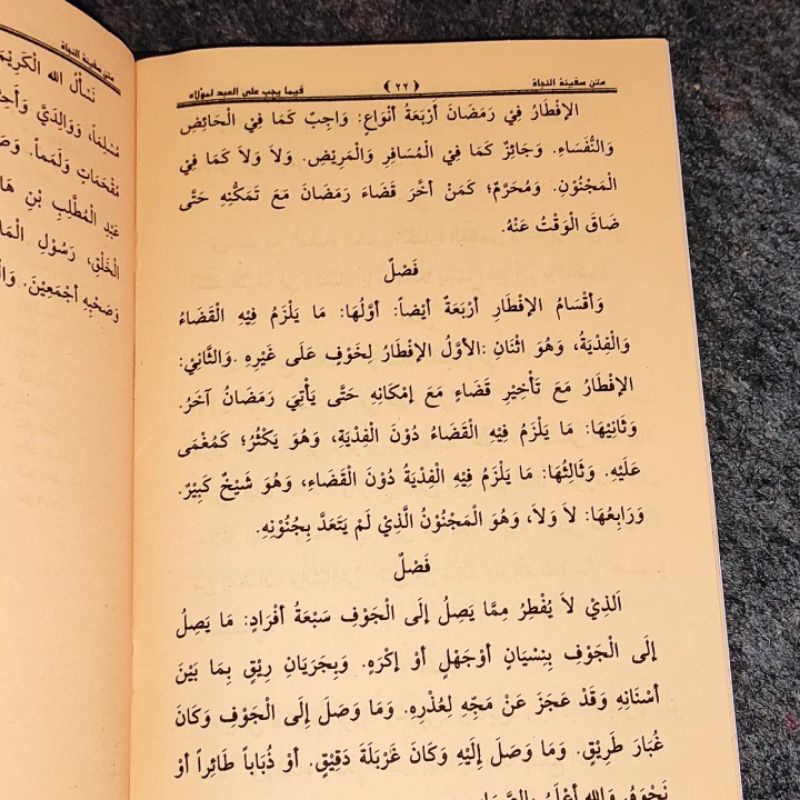 متن سفينة النجاة (٢٢) فيما يجب على العبد لمولاه
الإِفْطَارُ فِيْ رَمَضَانَ أَرْبَعَةُ أَنْوَاعٍ: وَاجِبٌ كَمَا فِيْ الْحَائِضِ
وَالنُّفَسَاءِ. وَجَائِزٌ كَمَا فِيْ الْمُسَافِرِ وَالْمَرِيْضِ. وَلاَ وَلاَ كَمَا فِيْ
الْمَجْنُوْنِ. وَمُحَرَّمٌ؛ كَمَنْ أَخَّرَ قَضَاءَ رَمَضَانَ مَعَ تَمَكُّنِهِ حَتَّى
ضَاقَ الْوَقْتُ عَنْهُ.
فَصْلٌ
وَأَقْسَامُ الإِفْطَارِ أَرْبَعَةٌ أَيْضاً: أَوَّلُهَا: مَا يَلْزَمُ فِيْهِ الْقَضَاءُ
وَالْفِدْيَةُ، وَهُوَ اثْنَانِ :الأَوَّلُ الإِفْطَارُ لِخَوْفٍ عَلَى غَيْرِهِ .وَالثَّانِيْ:
الإِفْطَارُ مَعَ تَأْخِيْرِ قَضَاءٍ مَعَ إِمْكَانِهِ حَتَّى يَأْتِيَ رَمَضَانُ آخَرُ.
وَثَانِيْهَا: مَا يَلْزَمُ فِيْهِ الْقَضَاءُ دُوْنَ الْفِدْيَةِ، وَهُوَ يَكْثُرُ؛ كَمُغْمَى
عَلَيْهِ. وَثَالِثُهَا: مَا يَلْزَمُ فِيْهِ الْفِدْيَةُ دُوْنَ الْقَضَاءِ، وَهُوَ شَيْخٌ كَبِيْرٌ.
وَرَابِعُهَا: لاَ وَلاَ، وَهُوَ الْمَجْنُوْنُ الَّذِيْ لَمْ يَتَعَدَّ بِجُنُوْنِهِ.
فَصْلٌ
اَلذِيْ لاَ يُفْطِرُ مِمَّا يَصِلُ إِلَى الْجَوْفِ سَبْعَةُ أَفْرَادٍ: مَا يَصِلُ
إِلَى الْجَوْفِ بِنِسْيَانٍ أَوْجَهْلٍ أَوْ إِكْرَهٍ. وَبِجَرَيَانِ رِيْقٍ بِمَا بَيْنَ
أَسْنَانِهِ وَقَدْ عَجَزَ عَنْ مَجِّهِ لِعُذْرِهِ. وَمَا وَصَلَ إِلَى الْجَوْفِ وَكَانَ
غُبَارَ طَرِيْقٍ. وَمَا وَصَلَ إِلَيْهِ وَكَانَ غَرْبَلَةَ دَقِيْقٍ. أَوْ ذُبَاباً طَائِراً أَوْ
نَحْوَهُ وَالله أَعْلَمُ
متن سفينة النجاة
نَسْأَلُ الله الْكَرِيْمَ
مُسْلِماً، وَوَالِدَيَّ
مُقْحَمَاتٍ وَلَمَماً.
عَبْدِ الْمُطَّلِبِ بْنِ
الْخَلْقِ، رَسُوْلِ
وَصَحْبِهِ أَجْمَعِيْنَ.